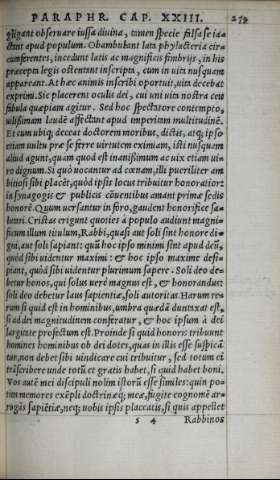 PARAPHR. CAP. XXIII. 279
gligant obseruare iussa diuina, tamen specie falsa se ia-
ctent apud populum. Obambulant lata phylacteria cir-
cumferentes, incedunt latis ac magnificis fimbrijs, in his
præcepta legis ostentant inscripta, cum in uita nusquam
appareant. At hæc animis inscribi oportuit, uita decebat
exprimi. Sic placerent oculi dei, cui uni uita nostra ceu
fabula quæpiam agitur. Sed hoc spectatore contempto,
uilißimam laudē affectant apud imperitam multitudinē.
Et cum ubiq; deceat doctorem moribus, dictis, atq; ipso
etiam uultu præ se ferre uirtutem eximiam, isti nusquam
aliud agunt, quam quod est inanißimum ac uix etiam ui-
ro dignum. Si quò uocantur ad cœnam, illi pueriliter am
bitiosi sibi placēt, quòd ipsis locus tribuitur honoratior:
in synagogis & publicis cōuentibus amant primæ sedis
honorē. Quum uersantur in foro, gaudent honorifice sa-
lutari. Cristas erigunt quoties à populo audiunt magni-
ficum illum titulum, Rabbi, quasi aut soli sint honore di-
gni, aut soli sapiant: quū hoc ipso minimi sint apud deū,
quòd sibi uidentur maximi: & hoc ipso maxime desi-
piant, quòd sibi uidentur plurimum sapere. Soli deo de-
betur honos, qui solus uerè magnus est, & honorandus:
soli deo debetur laus sapientiæ, soli autoritas. Harum re-
rum si quid est in hominibus, umbra quædā duntaxat est,
si ad dei magnitudinem conferatur, & hoc ipsum à dei
largitate profectum est. Proinde si quid honoris tribuunt
homines hominibus ob dei dotes, quas in illis esse suspicā
tur, non debet sibi uindicare cui tribuitur, sed totum ei
trāscribere unde totū et gratis habet, si quid habet boni.
Vos autē mei discipuli nolim istorū esse similes: quin po-
tius memores exēpli doctrinæq; meæ, fugite cognomē ar-
rogās sapiētiæ, neq; uobis ipsis placeatis, si quis appellet
s 4 Rabbinos